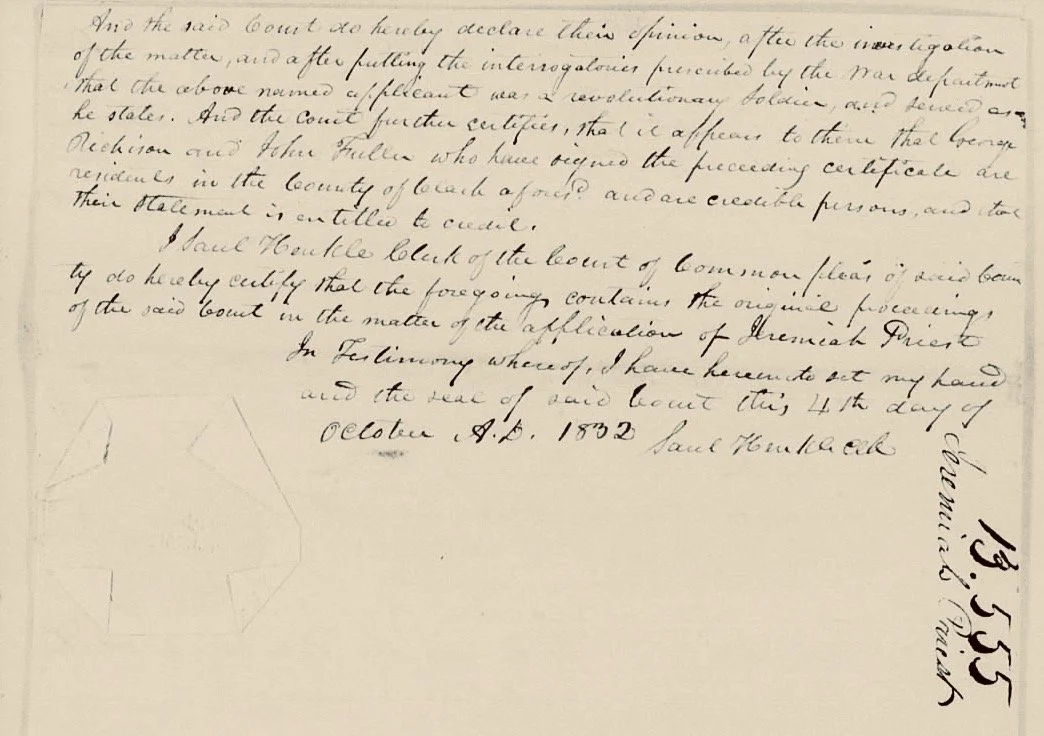 And the said Court do hereby declare their opinion, after the investigation
of the matter, and after putting the interrogatories prescribed by the War department
that the above named applicant was a revolutionary Soldier, and served as
he states. And the court further certifies, that it appears to them that George
Richison and John Fuller who have signed the preceding certificate are
residents in the County of Clark afores.d and are credible persons, and that
their statement is entitled to credit.
I Saul Henkle Clerk of the Court of Common pleas of said Coun
ty do hereby certify that the foregoing contains the original proceedings
of the said Court in the matter of the application of Jeremiah Priest
In Testimony whereof, I have hereunto set my hand
and the seal of said Court this 4th day of
October A.D. 1832
Saul Henkle Clk
13.555
Jeremiah Priest